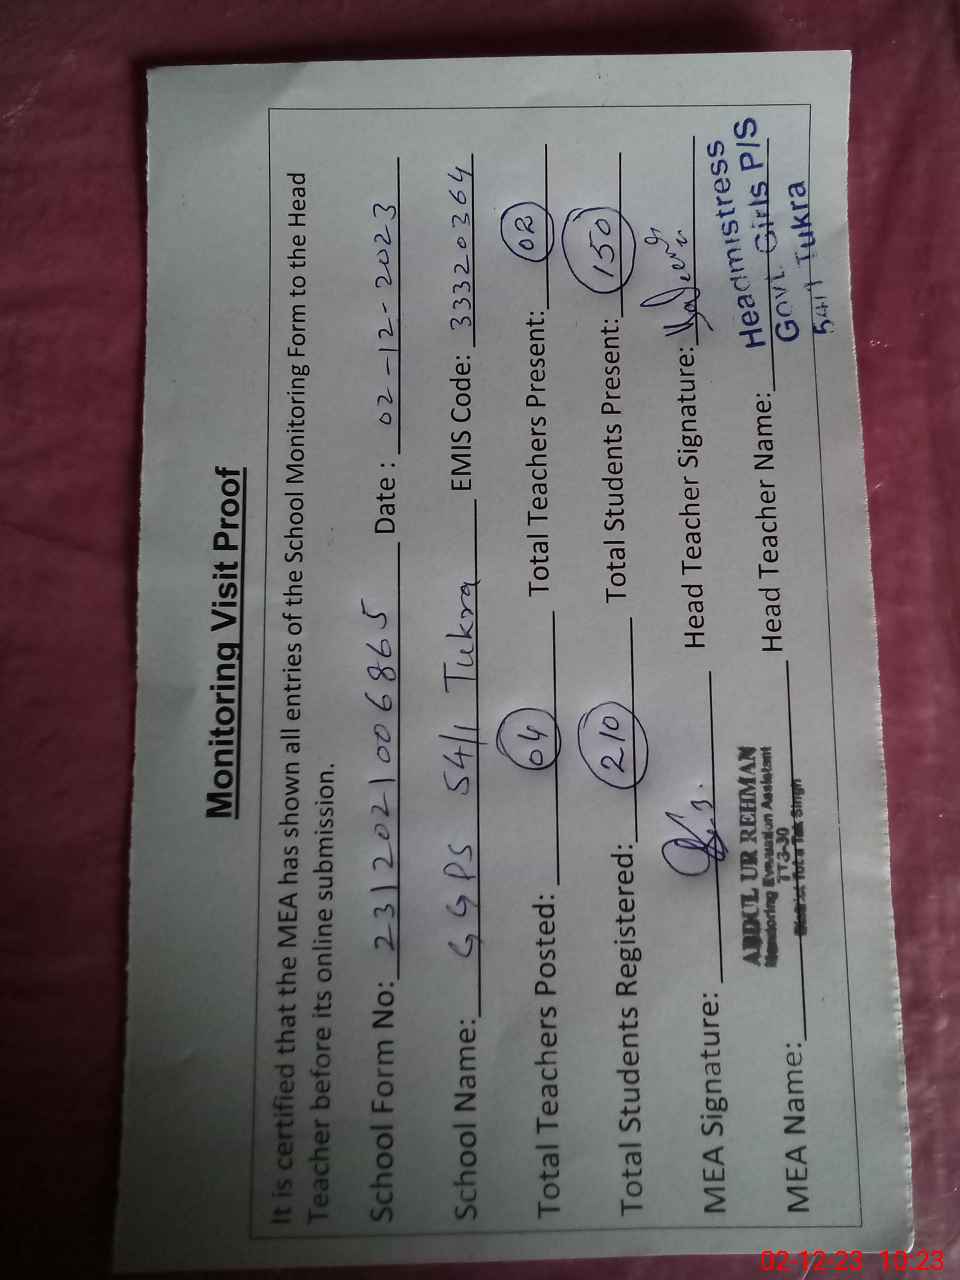 Monitoring Visit Proof
It is certified that the MEA has shown all entries of the School Monitoring Form to the Head
Teacher before its online submission.
School Form No: 2312021006865 Date : 02-12-2023
School Name: GGPS 54/1 Tukra EMIS Code: 33320364
Total Teachers Posted: 04 Total Teachers Present: 02
Total Students Registered: 210 Total Students Present: 150
MEA Signature: Head Teacher Signature:
ABDUL UR REHMAN
Monitoring Evaluation Assistant
TT3-30
District Toba Tek Singh
Headmistress
Govt. Girls P/S
54/1 Tukra
MEA Name: Head Teacher Name:
02-12-23 10:23